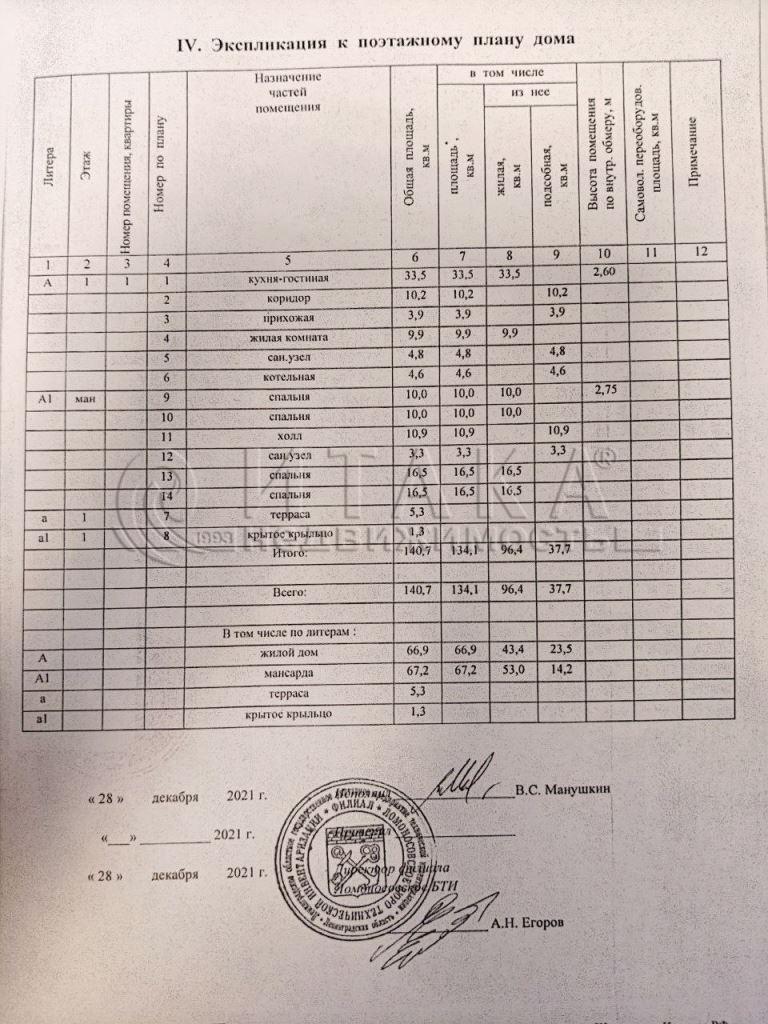 IV. Экспликация к поэтажному плану дома
Литера
Этаж
Номер помещения, квартиры
Номер по плану
Назначение
частей
помещения
Общая площадь,
кв.м
в том числе
площадь*,
кв.м
из нее
жилая,
кв.м
подсобная,
кв.м
Высота помещения
по внутр. обмеру, м
Самовол. переоборудов.
площадь, кв.м
Примечание
1 2 3 4 5 6 7 8 9 10 11 12
А 1 1 1 кухня-гостиная 33,5 33,5 33,5 2,60
2 коридор 10,2 10,2 10,2
3 прихожая 3,9 3,9 3,9
4 жилая комната 9,9 9,9 9,9
5 сан.узел 4,8 4,8 4,8
6 котельная 4,6 4,6 4,6
А1 ман 9 спальня 10,0 10,0 10,0 2,75
10 спальня 10,0 10,0 10,0
11 холл 10,9 10,9 10,9
12 сан.узел 3,3 3,3 3,3
13 спальня 16,5 16,5 16,5
14 спальня 16,5 16,5 16,5
а 1 7 терраса 5,3
а1 1 8 крытое крыльцо 1,3
Итого: 140,7 134,1 96,4 37,7
Всего: 140,7 134,1 96,4 37,7
В том числе по литерам :
А жилой дом 66,9 66,9 43,4 23,5
А1 мансарда 67,2 67,2 53,0 14,2
а терраса 5,3
а1 крытое крыльцо 1,3
ИТАКА®
« 28 » декабря 2021 г. Исполнил В.С. Манушкин
«___» __________ 2021 г. Проверил
« 28 » декабря 2021 г. Директор филиала
Ломоносовское БТИ
А.Н. Егоров
ФИЛИАЛ • ЛОМОНОСОВСКОЕ БЮРО ТЕХНИЧЕСКОЙ ИНВЕНТАРИЗАЦИИ
Ленинградская область